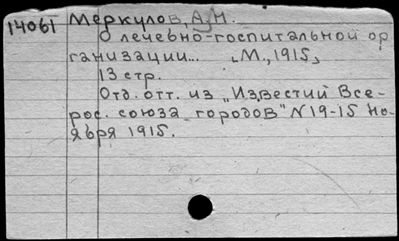 14061 Меркулов, А.Н.
О лечебно-госпитальной ор
ганизации... „М., 1915„
13 стр.
Отд. отт. из „Известий Все-
рос. союза городов" N 19-15 Но-
ября 1915.